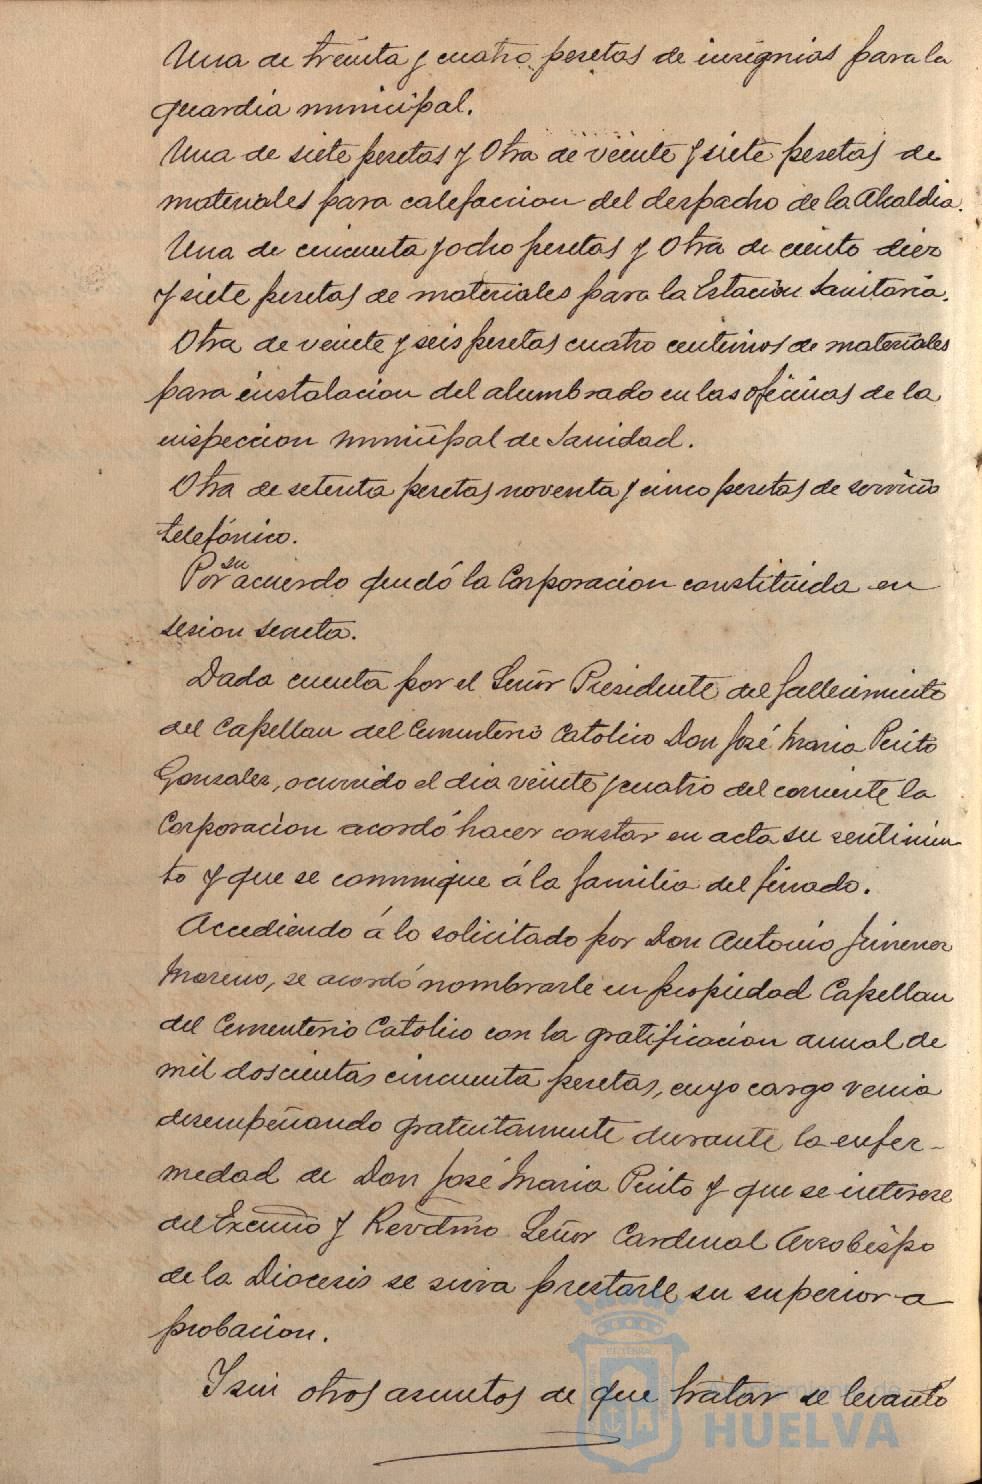 Una de treinta y cuatro pesetas de insignias para la
guardia municipal.
Una de siete pesetas y Otra de veinte y siete pesetas de
materiales para calefaccion del despacho de la Alcaldia.
Una de cincuenta y ocho pesetas y Otra de ciento diez
y siete pesetas de materiales para la Estación Sanitaria.
Otra de veinte y seis pesetas cuatro centimos de materiales
para instalacion del alumbrado en las oficinas de la
inspeccion municipal de Sanidad.
Otra de setenta pesetas noventa y cinco pesetas de servicio
telefónico.
Por su acuerdo quedó la Corporacion constituida en
sesion secreta.
Dada cuenta por el Señor Presidente del fallecimiento
del Capellan del Cementerio Catolico Don José Maria Pinto
Gonzalez, ocurrido el dia veinte y cuatro del corriente la
Corporacion acordó hacer constar en acta su sentimien
to y que se comunique á la familia del finado.
Accediendo á lo solicitado por Don Antonio Jimenez
Moreno, se acordó nombrarle en propiedad Capellan
del Cementerio Catolico con la gratificacion annual de
mil doscientas cincuenta pesetas, cuyo cargo venia
desempeñando gratuitamente durante la enfer-
medad de Don José Maria Pinto y que se interese
del Excmo y Revdmo Señor Cardenal Arzobispo
de la Diocesis se sirva prestarle su superior a
probacion.
Y sin otros asuntos de que tratar se levantó
HUELVA